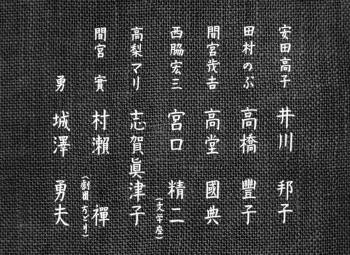 安田高子 井川 邦子
田村のぶ 高橋 豐子
間宮茂吉 高堂 國典
西脇宏三 宮口 精二 (文學座)
高梨マリ 志賀眞津子
間宮 實 村瀨 禪 (劇團ちどり)
勇 城澤 勇夫